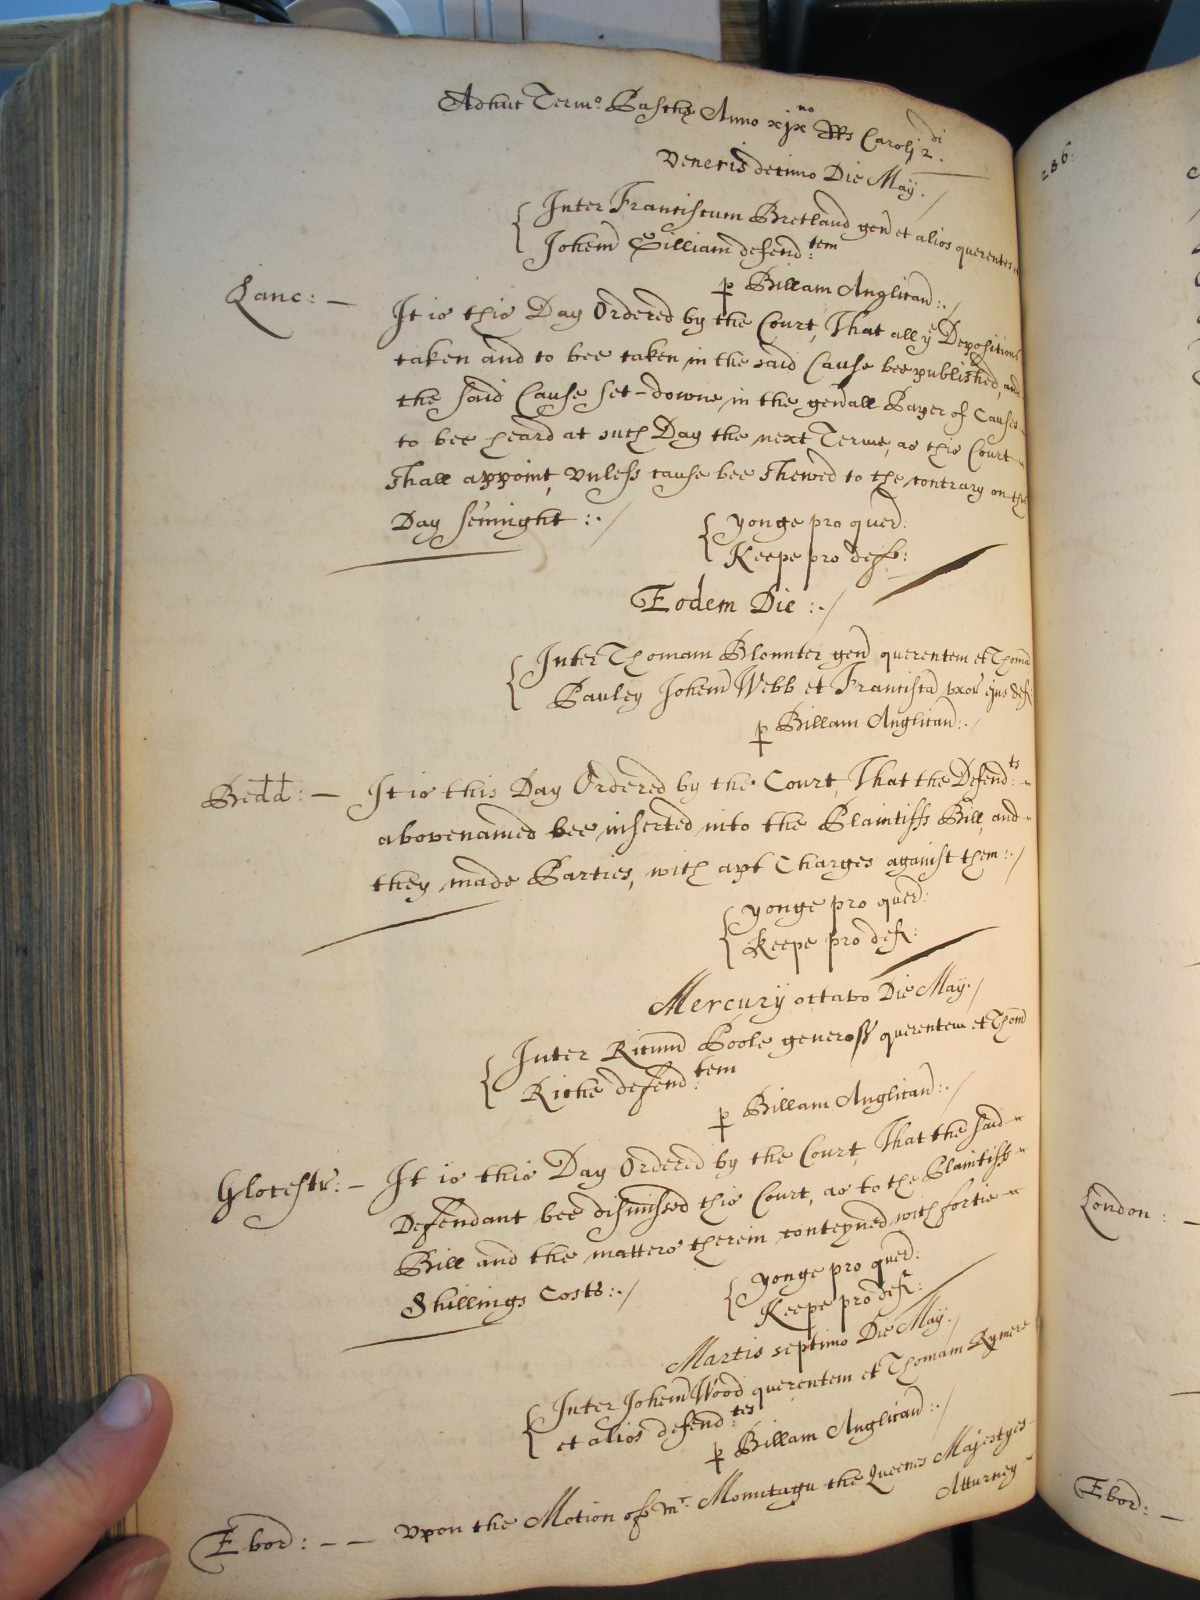 Adhuc Termo Pasche Anno xjx no RRs Carolj 2 di.
Veneris decimo Die Maÿ./
Inter Franciscum Bretland gen et alios querentes et
Johem Gilliam defend:tem
p Billam Anglican:./
Lanc: — It is this Day Ordered by the Court, That all ye Depositions
taken and to bee taken in the said Cause bee published, and
the said Cause set-downe in the genall Paper of Causes
to bee heard at such Day the next Terme, as this Court
Shall appoint, Vnless cause bee Shewed to the contrary on this
Day Sennight :./
Yonge pro quer:
Keepe pro def:
Eodem Die :./
Inter Thomam Blonnter gen querentem et Thomã
Pauley Johem Webb et Francisca vxor ejus def
p Billam Anglican:./
Bedd: — It is this Day Ordered by the Court, That the Defend:ts
abovenamed bee inserted into the Plaintiffs Bill, and
they made Parties, with apt Charges against them:./
Yonge pro quer:
Keepe pro def:
Mercurÿ octavo Die Maÿ./
Inter Ricum Poole geneross querentem et Thom
Riche defend:tem
p Billam Anglican:./
Glocestr: — It is this Day Ordered by the Court, That the said
Defendant bee dismissed this Court, as to the Plaintiffs
Bill and the matters therein conteyned with fortie
Shillings Costs:./
Yonge pro quer:
Keepe pro def:
Martis septimo Die Maÿ./
Inter Johem Wood querentem et Thomam Rymere
et alios defend:tes
p Billam Anglican:./
Ebor: — — Vpon the Motion of Mr. Mountagu the Queenes Majestyes
Atturney
286.
London : —
Ebor: —